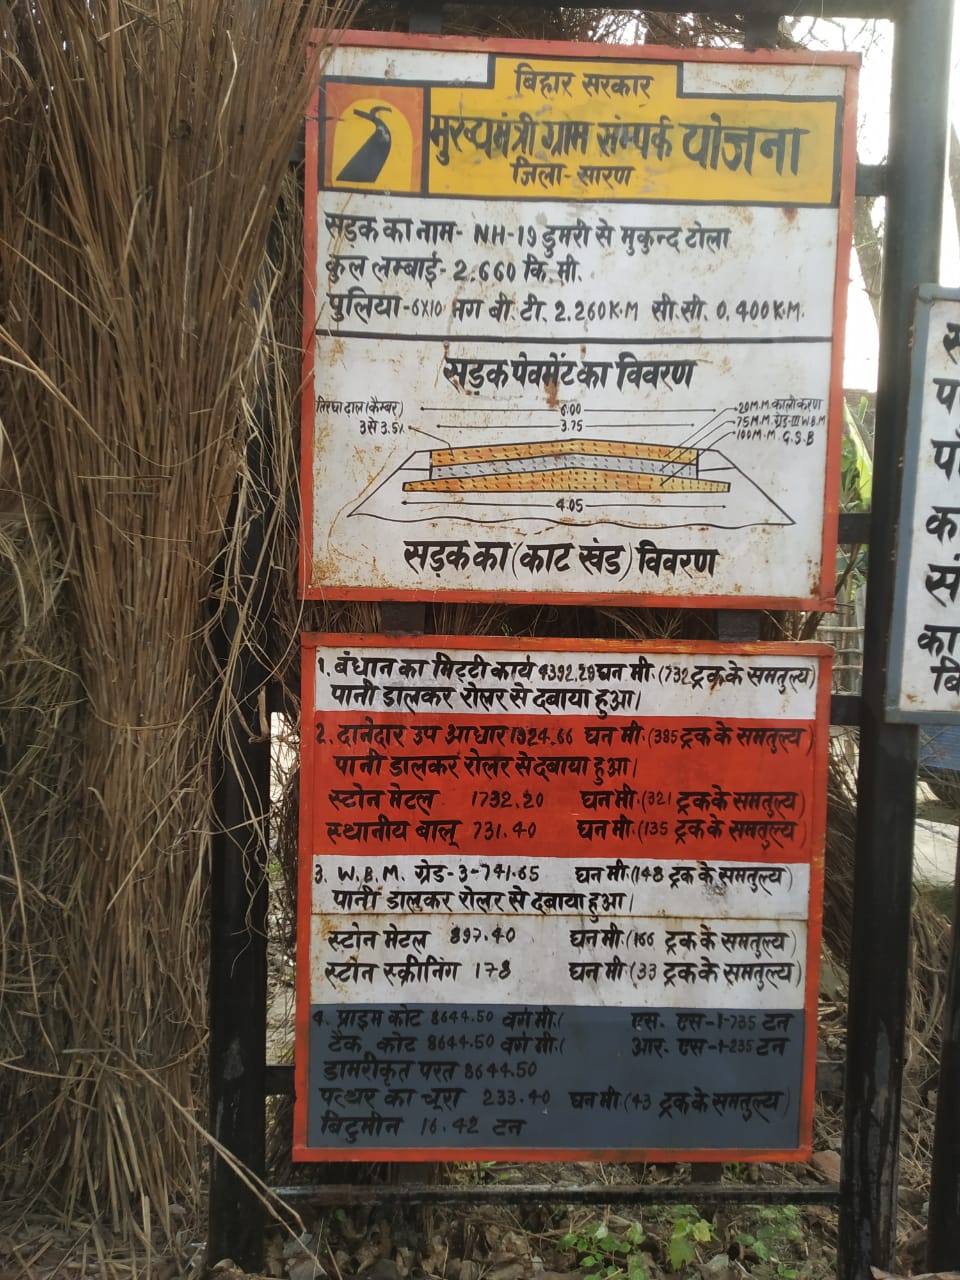 बिहार सरकार
मुख्यमंत्री ग्राम संम्पर्क योजना
जिला-सारण
सड़क का नाम- NH-19 डुमरी से मुकुन्द टोला
कुल लम्बाई- 2.660 कि.मी.
पुलिया-6X10 नग बी.टी. 2.260K.M सी.सी. 0.400K.M.
सड़क पेवमेंट का विवरण
तिरछा ढाल (कैम्बर)
3 से 3.5%
6.00
3.75
20M.M. कालीकरण
75M.M. ग्रेड-III W.B.M
100M.M. G.S.B
4.05
सड़क का (काट खंड) विवरण
1. बंधान का मिट्टी कार्य 4392.29 घन मी. (732 ट्रक के समतुल्य)
पानी डालकर रोलर से दबाया हुआ।
2. दानेदार उप आधार 1924.66 घन मी. (385 ट्रक के समतुल्य)
पानी डालकर रोलर से दबाया हुआ।
स्टोन मेटल 1732.20 घन मी. (321 ट्रक के समतुल्य)
स्थानीय बालू 731.40 घन मी. (135 ट्रक के समतुल्य)
3. W.B.M. ग्रेड-3-741.65 घन मी. (148 ट्रक के समतुल्य)
पानी डालकर रोलर से दबाया हुआ।
स्टोन मेटल 897.40 घन मी. (166 ट्रक के समतुल्य)
स्टोन स्क्रीनिंग 178 घन मी. (33 ट्रक के समतुल्य)
4. प्राइम कोट 8644.50 वर्ग मी. ( एस. एस-1-735 टन
टैक कोट 8644.50 वर्ग मी. ( आर. एस-1-235 टन
डामरीकृत परत 8644.50
पत्थर का चूरा 233.40 घन मी. (43 ट्रक के समतुल्य)
बिटुमीन 16.42 टन